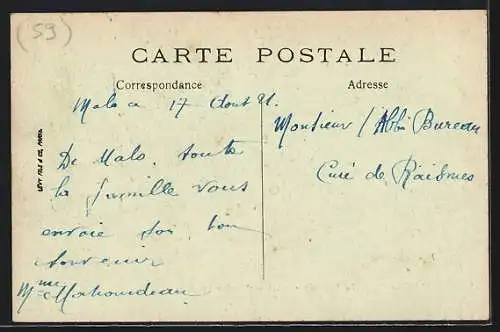 (59)
CARTE POSTALE
Correspondance
Adresse
Malo ce 17 Aout 21.
De Malo, toute
la famille vous
envoie son bon
souvenir
Mme
Monsieur l'Abbé Bureau
Curé de Raismes
LÉVY FILS & CIE, PARIS